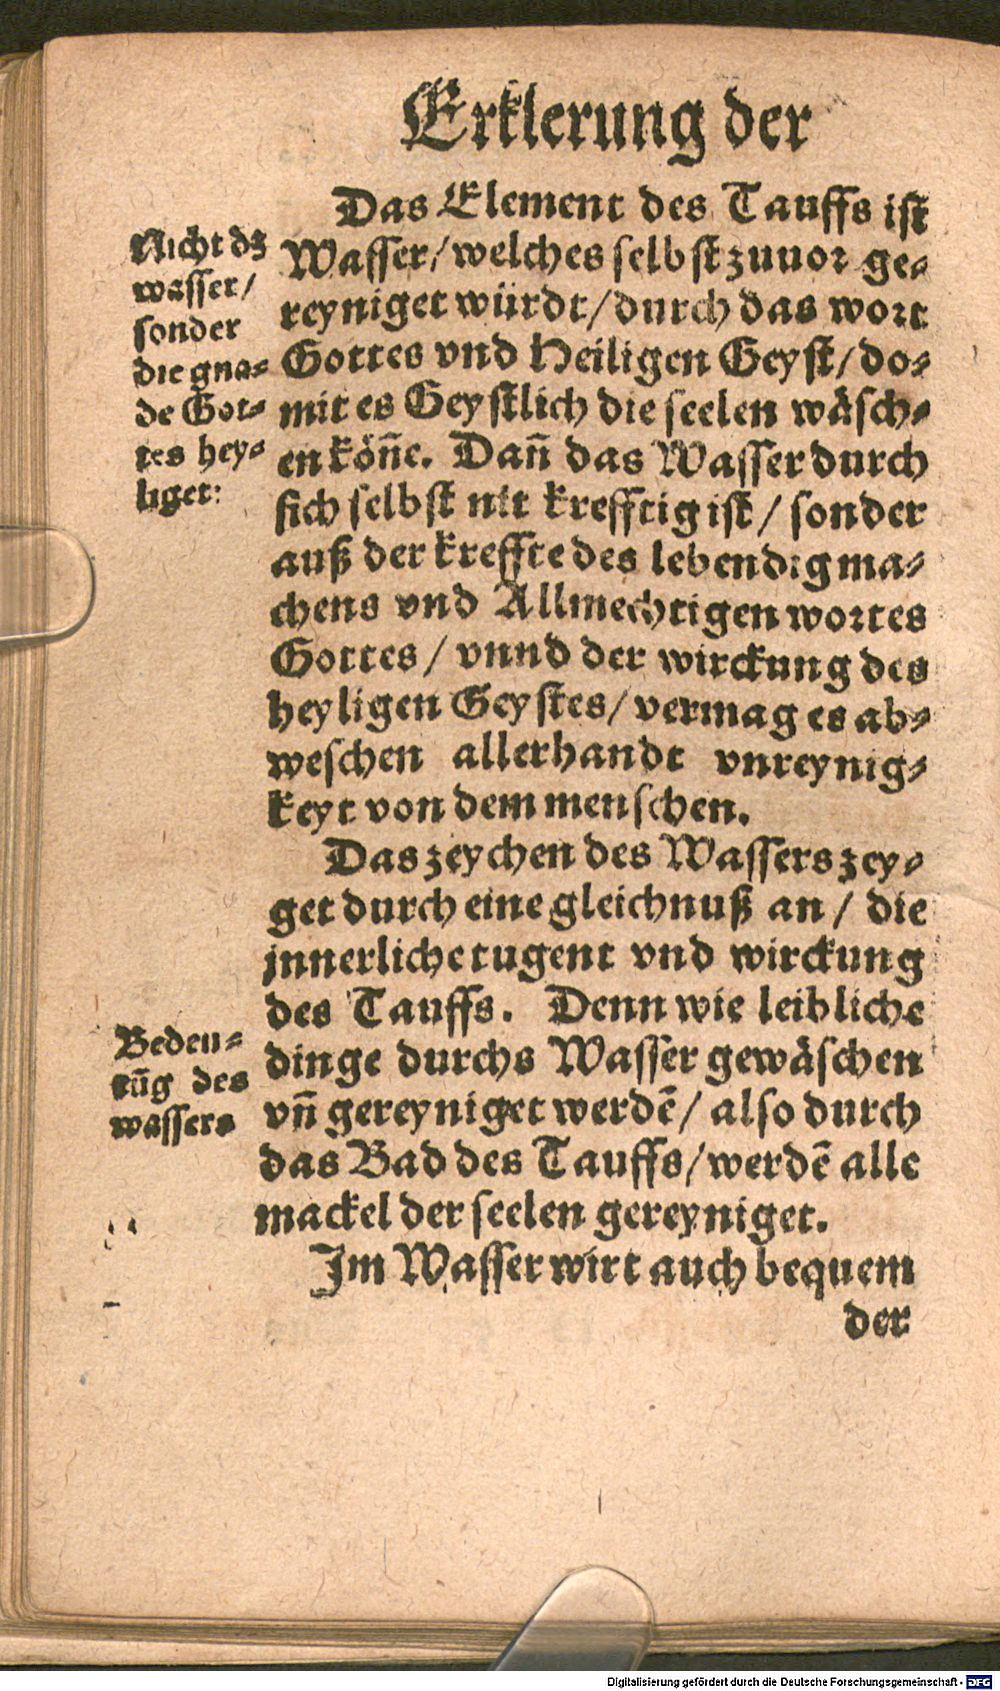 Erklerung der
Das Element des Tauffs ist
Wasser/ welches selbst zuuor ge-
reyniget würdt/ durch das wort
Gottes vnd Heiligen Geyst/ do-
mit es Geystlich die seelen wäsch-
en köñe. Dañ das Wasser durch
sich selbst nit krefftig ist/ sonder
auß der kreffte des lebendigma-
chens vnd Allmechtigen wortes
Gottes/ vnnd der wirckung des
heyligen Geystes/ vermag es ab-
weschen allerhandt vnreynig-
keyt von dem menschen.
Nicht dz
wasser/
sonder
die gna-
de Got-
tes hey-
liget:
Das zeychen des Wassers zey-
get durch eine gleichnuß an/ die
jnnerliche tugent vnd wirckung
des Tauffs. Denn wie leibliche
dinge durchs Wasser gewäschen
vñ gereyniget werdē/ also durch
das Bad des Tauffs/ werdē alle
mackel der seelen gereyniget.
Bedeu-
tūg des
wassers
Im Wasser wirt auch bequem
der
Digitalisierung gefördert durch die Deutsche Forschungsgemeinschaft - DFG